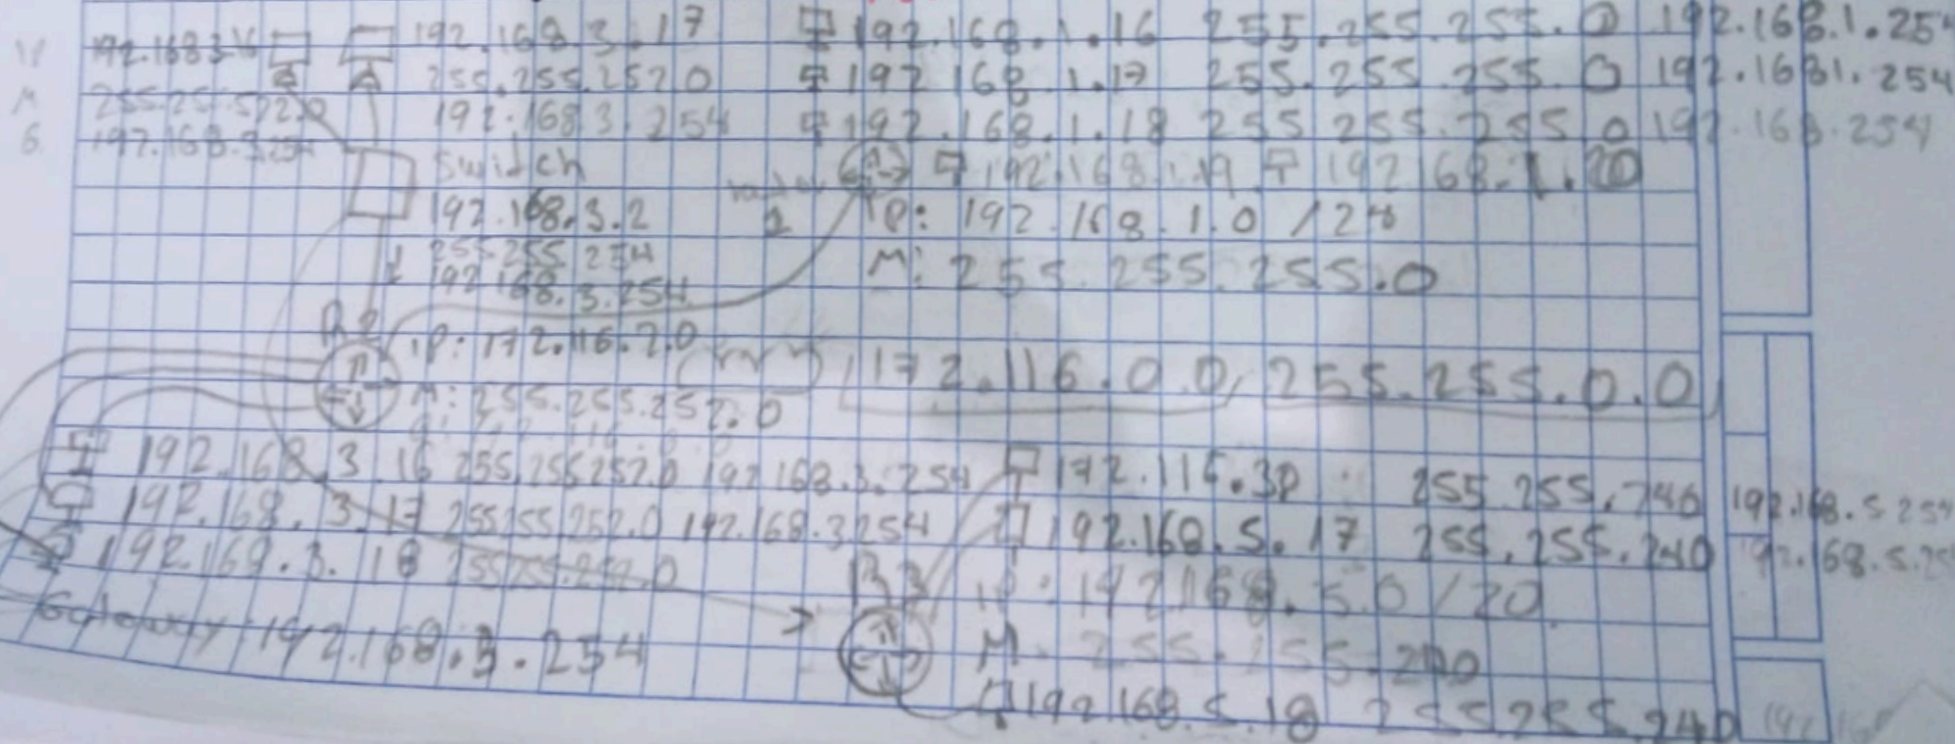 192.168.3.16
255.255.252.0
192.168.3.254
M
G
192.168.3.17
255.255.252.0
192.168.3.254
Switch
192.168.3.2
255.255.254
192.168.3.254
192.168.1.16 255.255.255.0 192.168.1.254
192.168.1.17 255.255.255.0 192.1681.254
192.168.1.18 255.255.255.0 192.168.254
1
192.168.1.19 192.168.1.20
IP: 192.168.1.0 /24
M: 255.255.255.0
R2
IP: 172.116.2.0
M: 255.255.252.0
172.116.0.0, 255.255.0.0
192.168.3.16 255.255.252.0 192.168.3.254
192.168.3.17 255.255.252.0 192.168.3254
192.168.3.18 255.255.252.0
Gateway: 192.168.3.254
255.255.240 192.168.5.254
192.168.5.17 255.255.240
R3
IP: 192.168.5.0 /20
M: 255.255.240
192.168.5.18 255.255.240